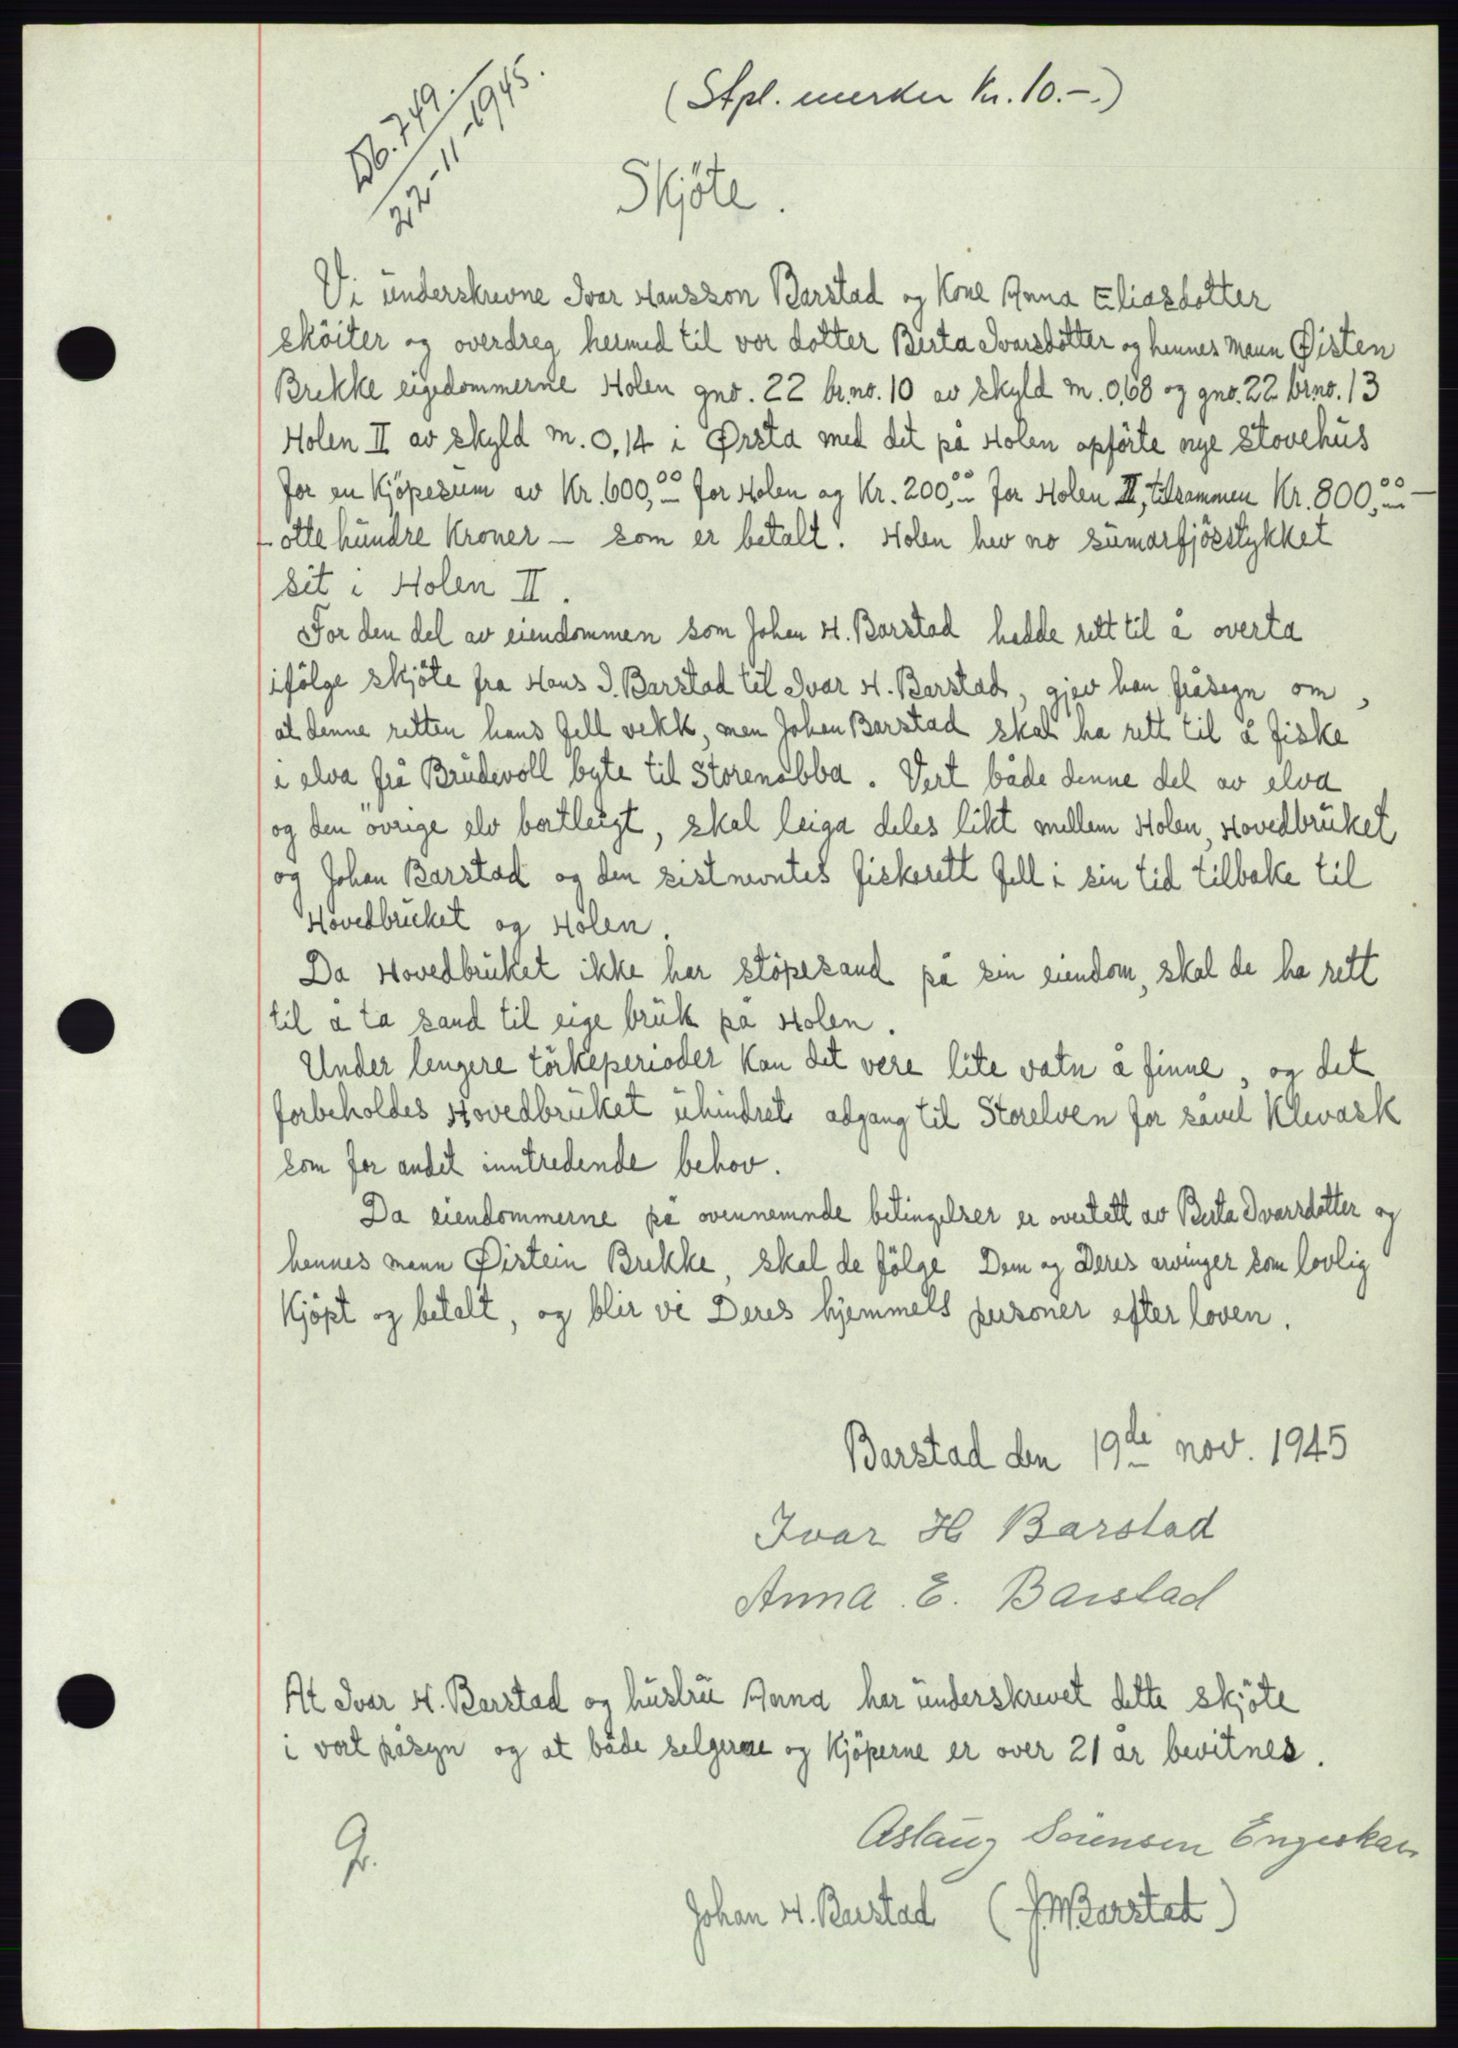 Db. 749.
22-11-1945.
(Stpl. merker Kr. 10.-.)
Skjöte.
Vi underskrevne Ivar Hansson Barstad og Kone Anna Eliasdotter
sköiter og overdreg hermed til vor dotter Berta Ivarsdotter og hennes mann Øisten
Brekke eigedommerne Holen gno. 22 br.no. 10 av skyld m. 0,68 og gno. 22 br.no. 13
Holen II av skyld m. 0,14 i Ørsta med det på Holen opförte nye stovehus
for en Kjöpesum av Kr. 600,00 for Holen og Kr. 200,00 for Holen II, tilsammen Kr. 800,00 —
- otte hundre Kroner - som er betalt. Holen hev no sumarfjösstykket
sit i Holen II.
For den del av eiendommen som Johan H. Barstad hadde rett til å overta
ifölge skjöte fra Hans I. Barstad til Ivar H. Barstad, gjev han fråsegn om,
at denne retten hans fell vekk, men Johan Barstad skal ha rett til å fiske
i elva frå Brudevoll byte til Storenabba. Vert både denne del av elva
og den övrige elv bortleigt, skal leiga deles likt mellem Holen, Hovedbruket
og Johan Barstad og den sistnevntes fiskerett fell i sin tid tilbake til
Hovedbruket og Holen.
Da Hovedbruket ikke har stöpesand på sin eiendom, skal de ha rett
til å ta sand til eige bruk på Holen.
Under lengere törkeperioder Kan det vere lite vatn å finne, og det
forbeholdes Hovedbruket uhindret adgang til Storelven for såvel Klevask
som for andet inntredende behov.
Da eiendommerne på ovennemnde betingelser er overtatt av Berta Ivarsdotter og
hennes mann Øistein Brekke, skal de fölge Dem og Deres arvinger som lovlig
Kjöpt og betalt, og blir vi Deres hjemmels personer efter loven.
Barstad den 19de nov. 1945
Ivar H Barstad
Anna E. Barstad
At Ivar H. Barstad og hustru Anna har underskrevet dette skjöte
i vort påsyn og at både selgerne og Kjöperne er over 21 år bevitnes.
Aslaug Sörensen Engeskar
Johan H. Barstad (J. M. Barstad)